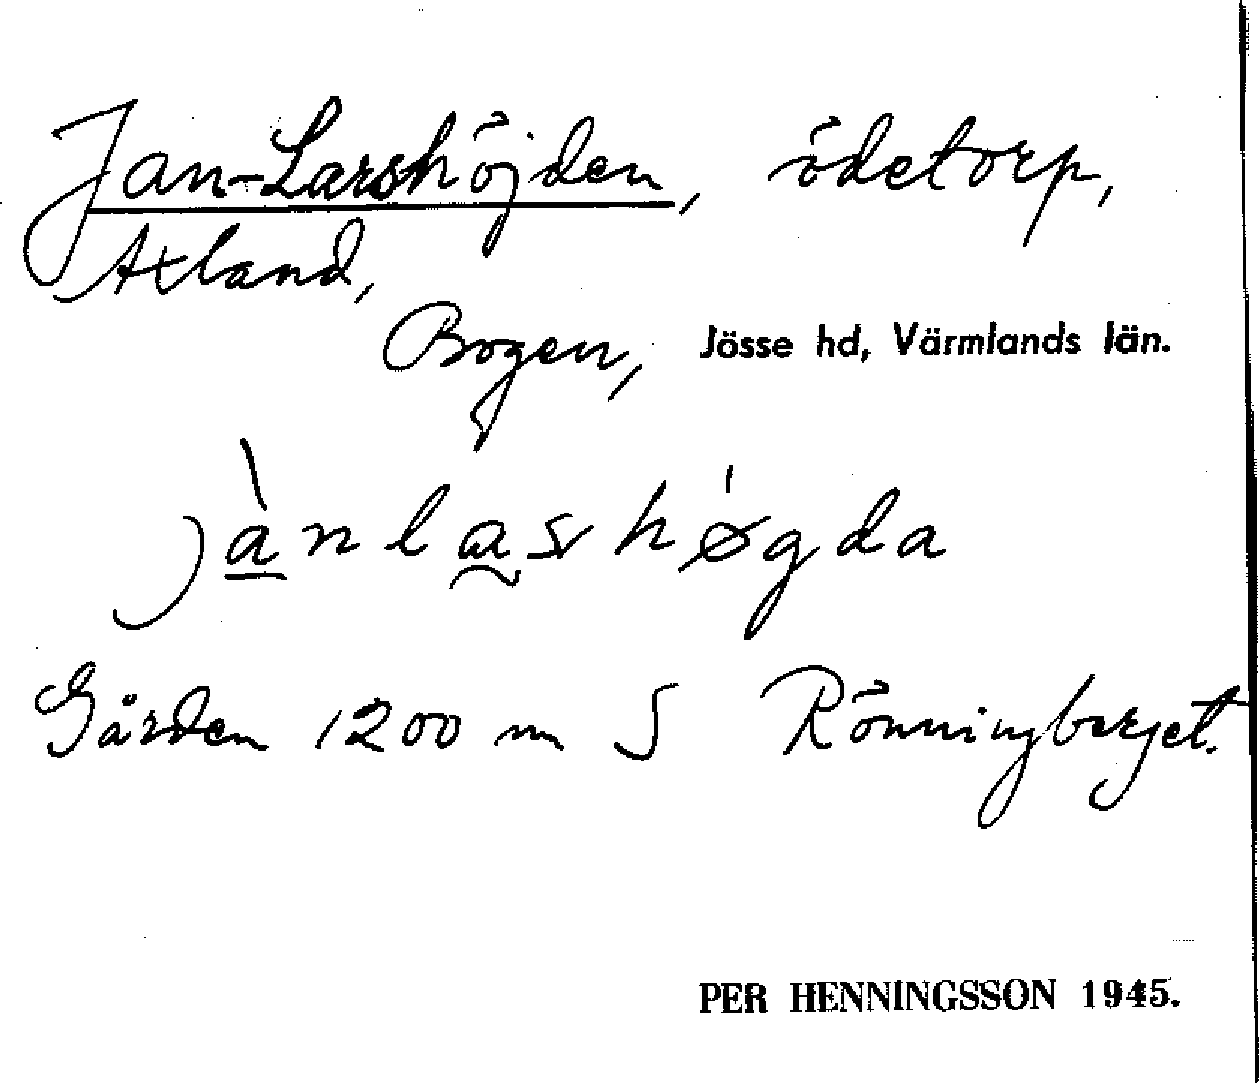 Jan-Larshöjden, ödetorp,
Axland,
Bogen, Jösse hd, Värmlands län.
jànlashøgda
Gården 1200 m S Rönningberget.
PER HENNINGSSON 1945.